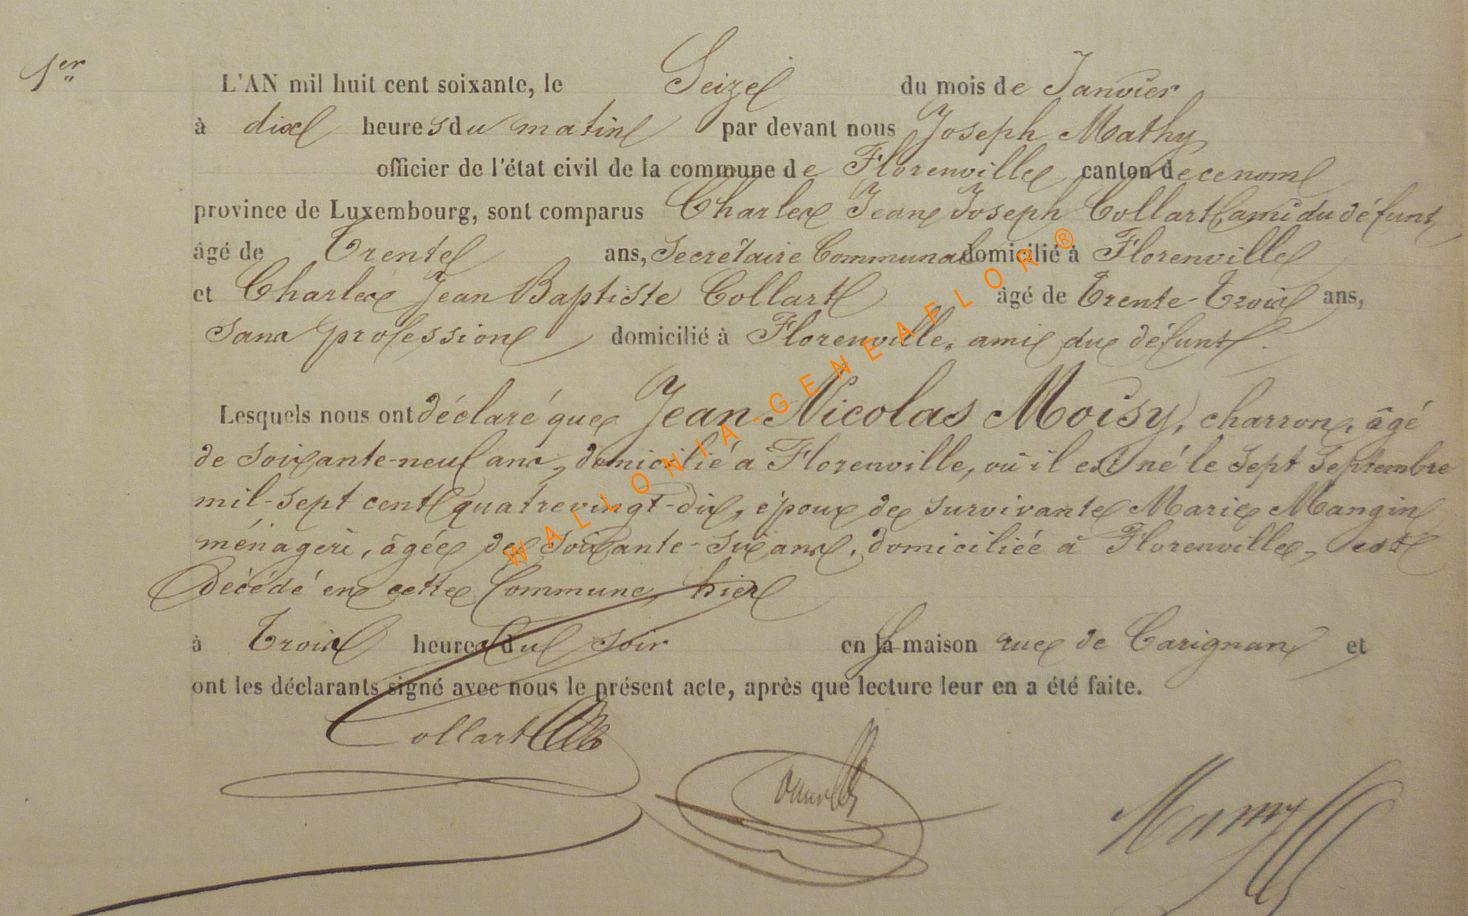 1er
L'AN mil huit cent soixante, le Seize du mois de Janvier
à dix heures du matin par devant nous Joseph Mathy
officier de l'état civil de la commune de Florenville canton de ce nom
province de Luxembourg, sont comparus Charles Jean Joseph Collart ami du défunt
âgé de Trente ans, Secrétaire Communal domicilié à Florenville
et Charles Jean Baptiste Collart âgé de Trente-Trois ans,
sans profession domicilié à Florenville, ami du défunt.
Lesquels nous ont déclaré que Jean Nicolas Moisy, charron, âgé
de soixante-neuf ans, domicilié à Florenville, où il est né le sept Septembre
mil-sept cent quatrevingt-dix, époux de survivante Marie Mangin
ménagère, âgée de soixante-six ans, domiciliée à Florenville, est
décédé en cette Commune, hier
à Trois heures du soir en la maison rue de Carignan et
ont les déclarants signé avec nous le présent acte, après que lecture leur en a été faite.
Collart
WALLONIA-GENEAFLOR ®